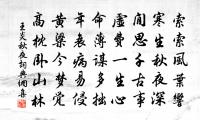 索索風葉響
寒生秋夜深
閒思千古事
虛費一生心
命薄謀多拙
年衰病易侵
黃粱今夢覺
高枕臥山林
王炎秋夜詞